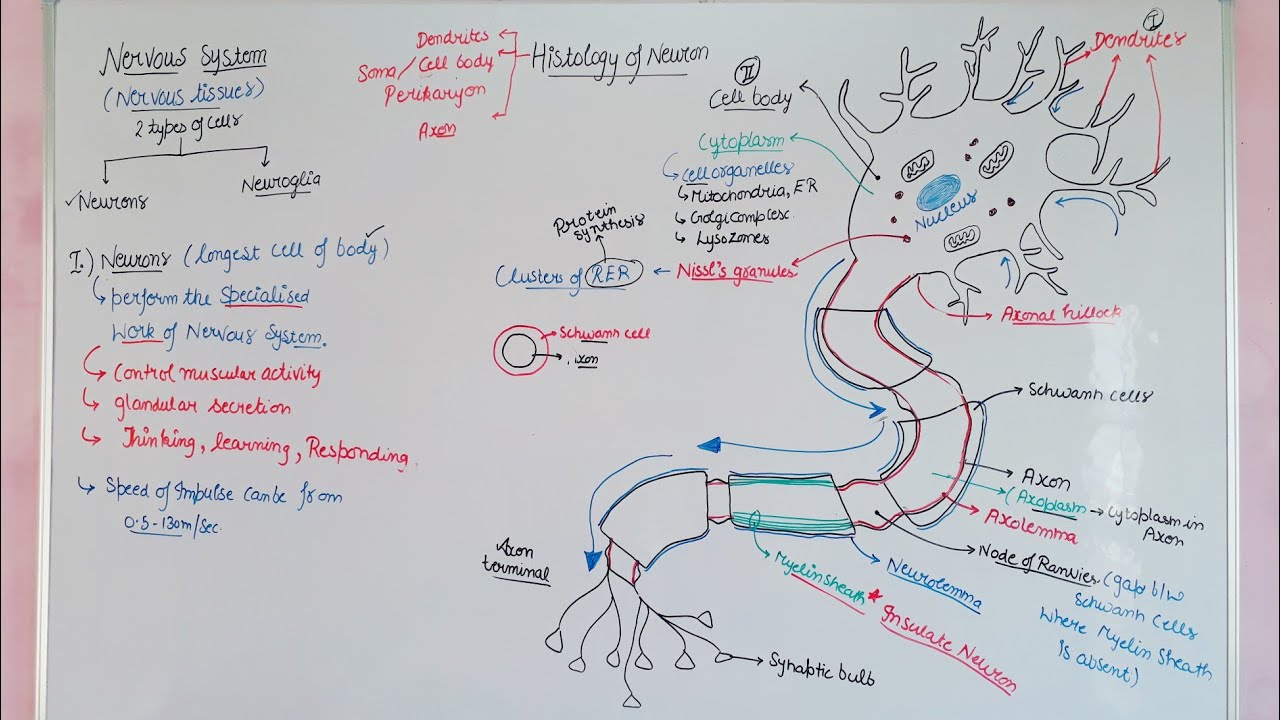 Nervous System
(Nervous tissues)
2 types of cells
✓Neurons
Neuroglia
I.) Neurons (longest cell of body) ✓
perform the Specialised
Work of Nervous System.
Control muscular activity
glandular secretion
Thinking, learning, Responding.
Speed of Impulse can be from
0.5-130m/sec.
Histology of Neuron
Dendrites
Soma/Cell body
Perikaryon
Axon
II
Cell body
Cytoplasm
Cell organelles
Mitochondria, ER
Golgi complex
Lysozomes
Nissl's granules
Clusters of RER
Protein
synthesis
Nucleus
I
Dendrites
Axonal hillock
Schwann cell
Axon
Schwann cells
Axon
(Axoplasm → Cytoplasm in
Axon
Axolemma
Node of Ranvier (gap b/w
Schwann Cells
Where Myelin Sheath
is absent)
Neurolemma
Myelin sheath * Insulate Neuron
Axon
terminal
Synaptic bulb